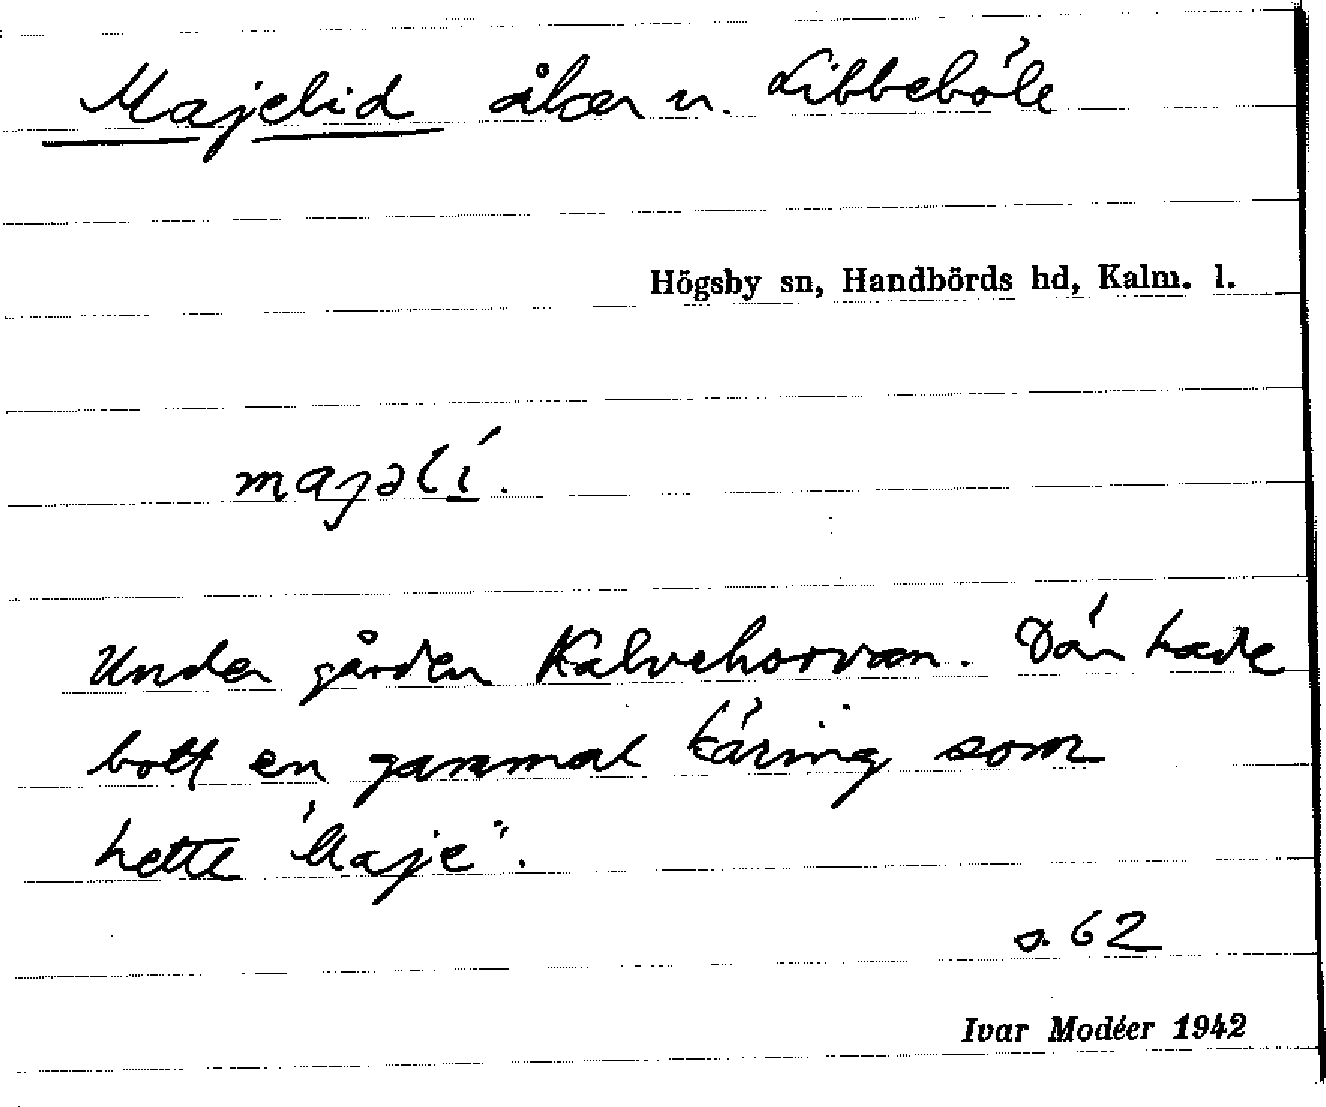 Majelid åker u. Libbeböle
Högsby sn, Handbörds hd, Kalm. l.
majəlí.
Under gården Kalvehorvan. Där hade
bott en gammal käring som
hette "Maje".
s. 62
Ivar Modéer 1942